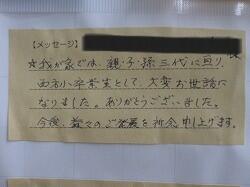 【メッセージ】
様
☆我が家では、親・子・孫三代に亘り、
西方小卒業生として、大変お世話に
なりました。ありがとうございました。
今後、益々のご発展を祈念申し上げます。